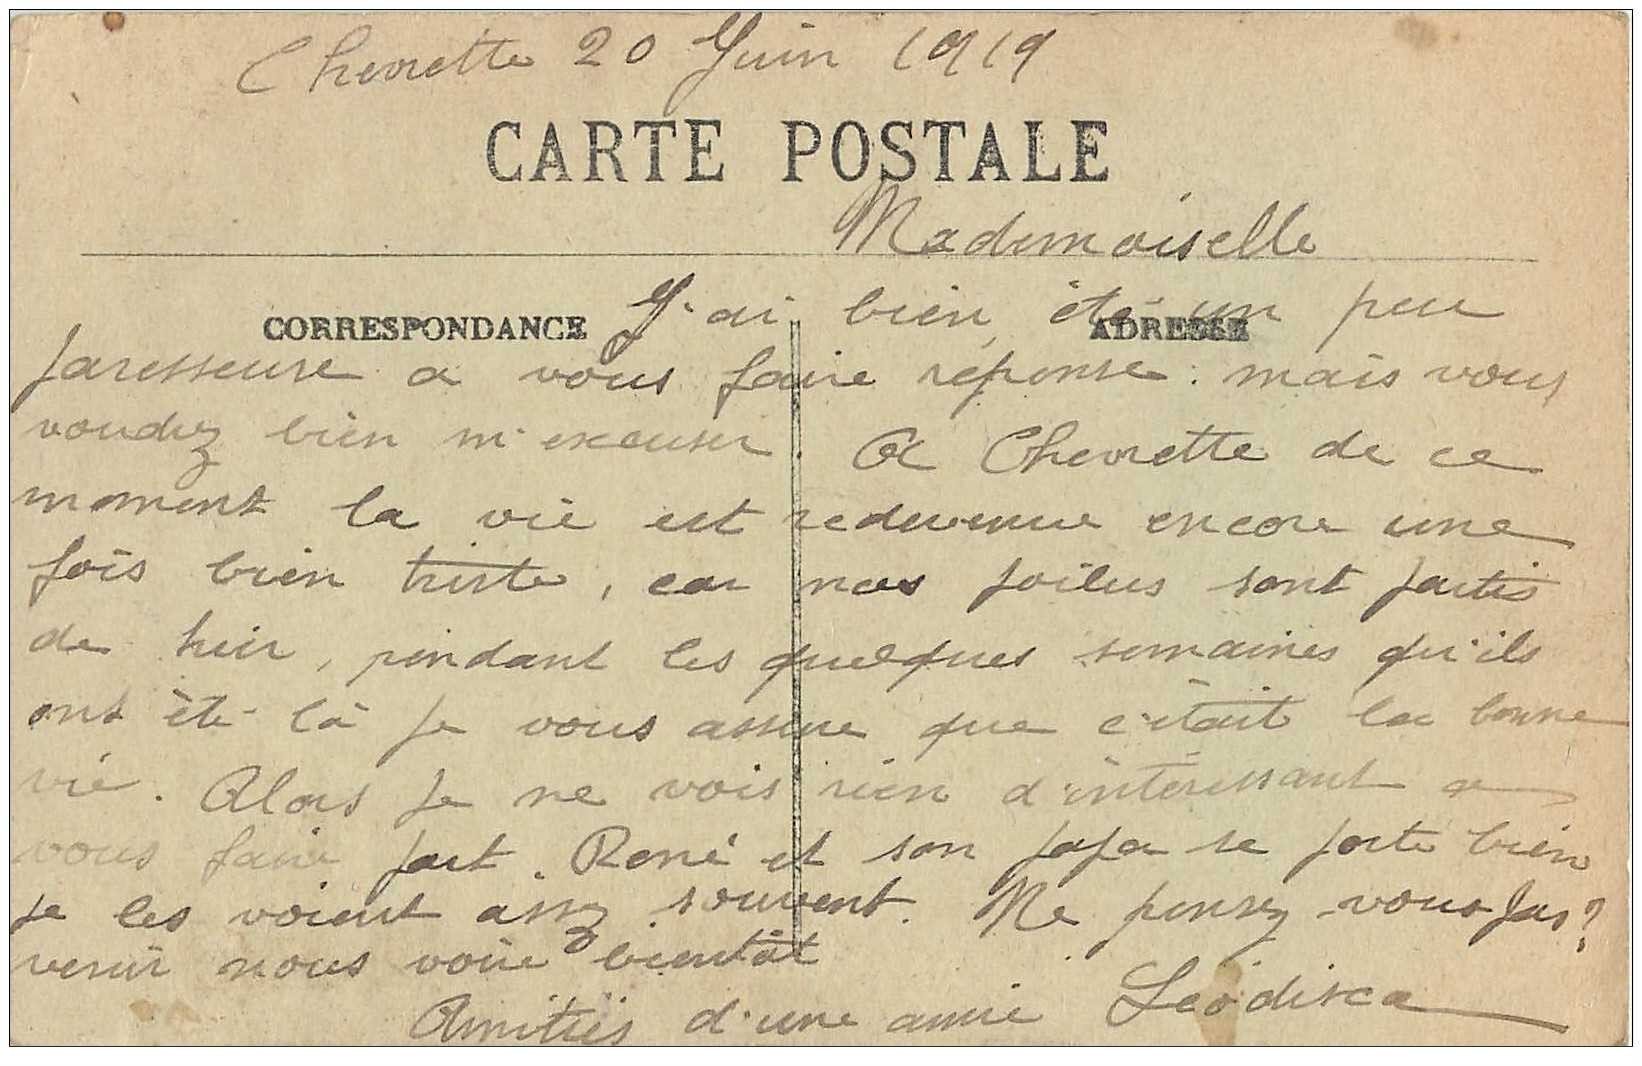 Chevrette 20 Juin 1919
CARTE POSTALE
Mademoiselle
CORRESPONDANCE
ADRESSE
J'ai bien été un peu
paresseuse a vous faire réponse. mais vous
voudrez bien m'excuser. A Chevrette de ce
moment la vie est redevenue encore une
fois bien triste, car nos poilus sont partis
de hier, pendant les quelques semaines qu'ils
ont été là je vous assure que c'était la bonne
vie. Alors je ne vois rien d'intéressant a
vous faire part. René et son papa se porte bien
je les voient assez souvent. Ne pensez-vous pas?
venir nous voire bientôt
Amitiés d'une amie Léodisca